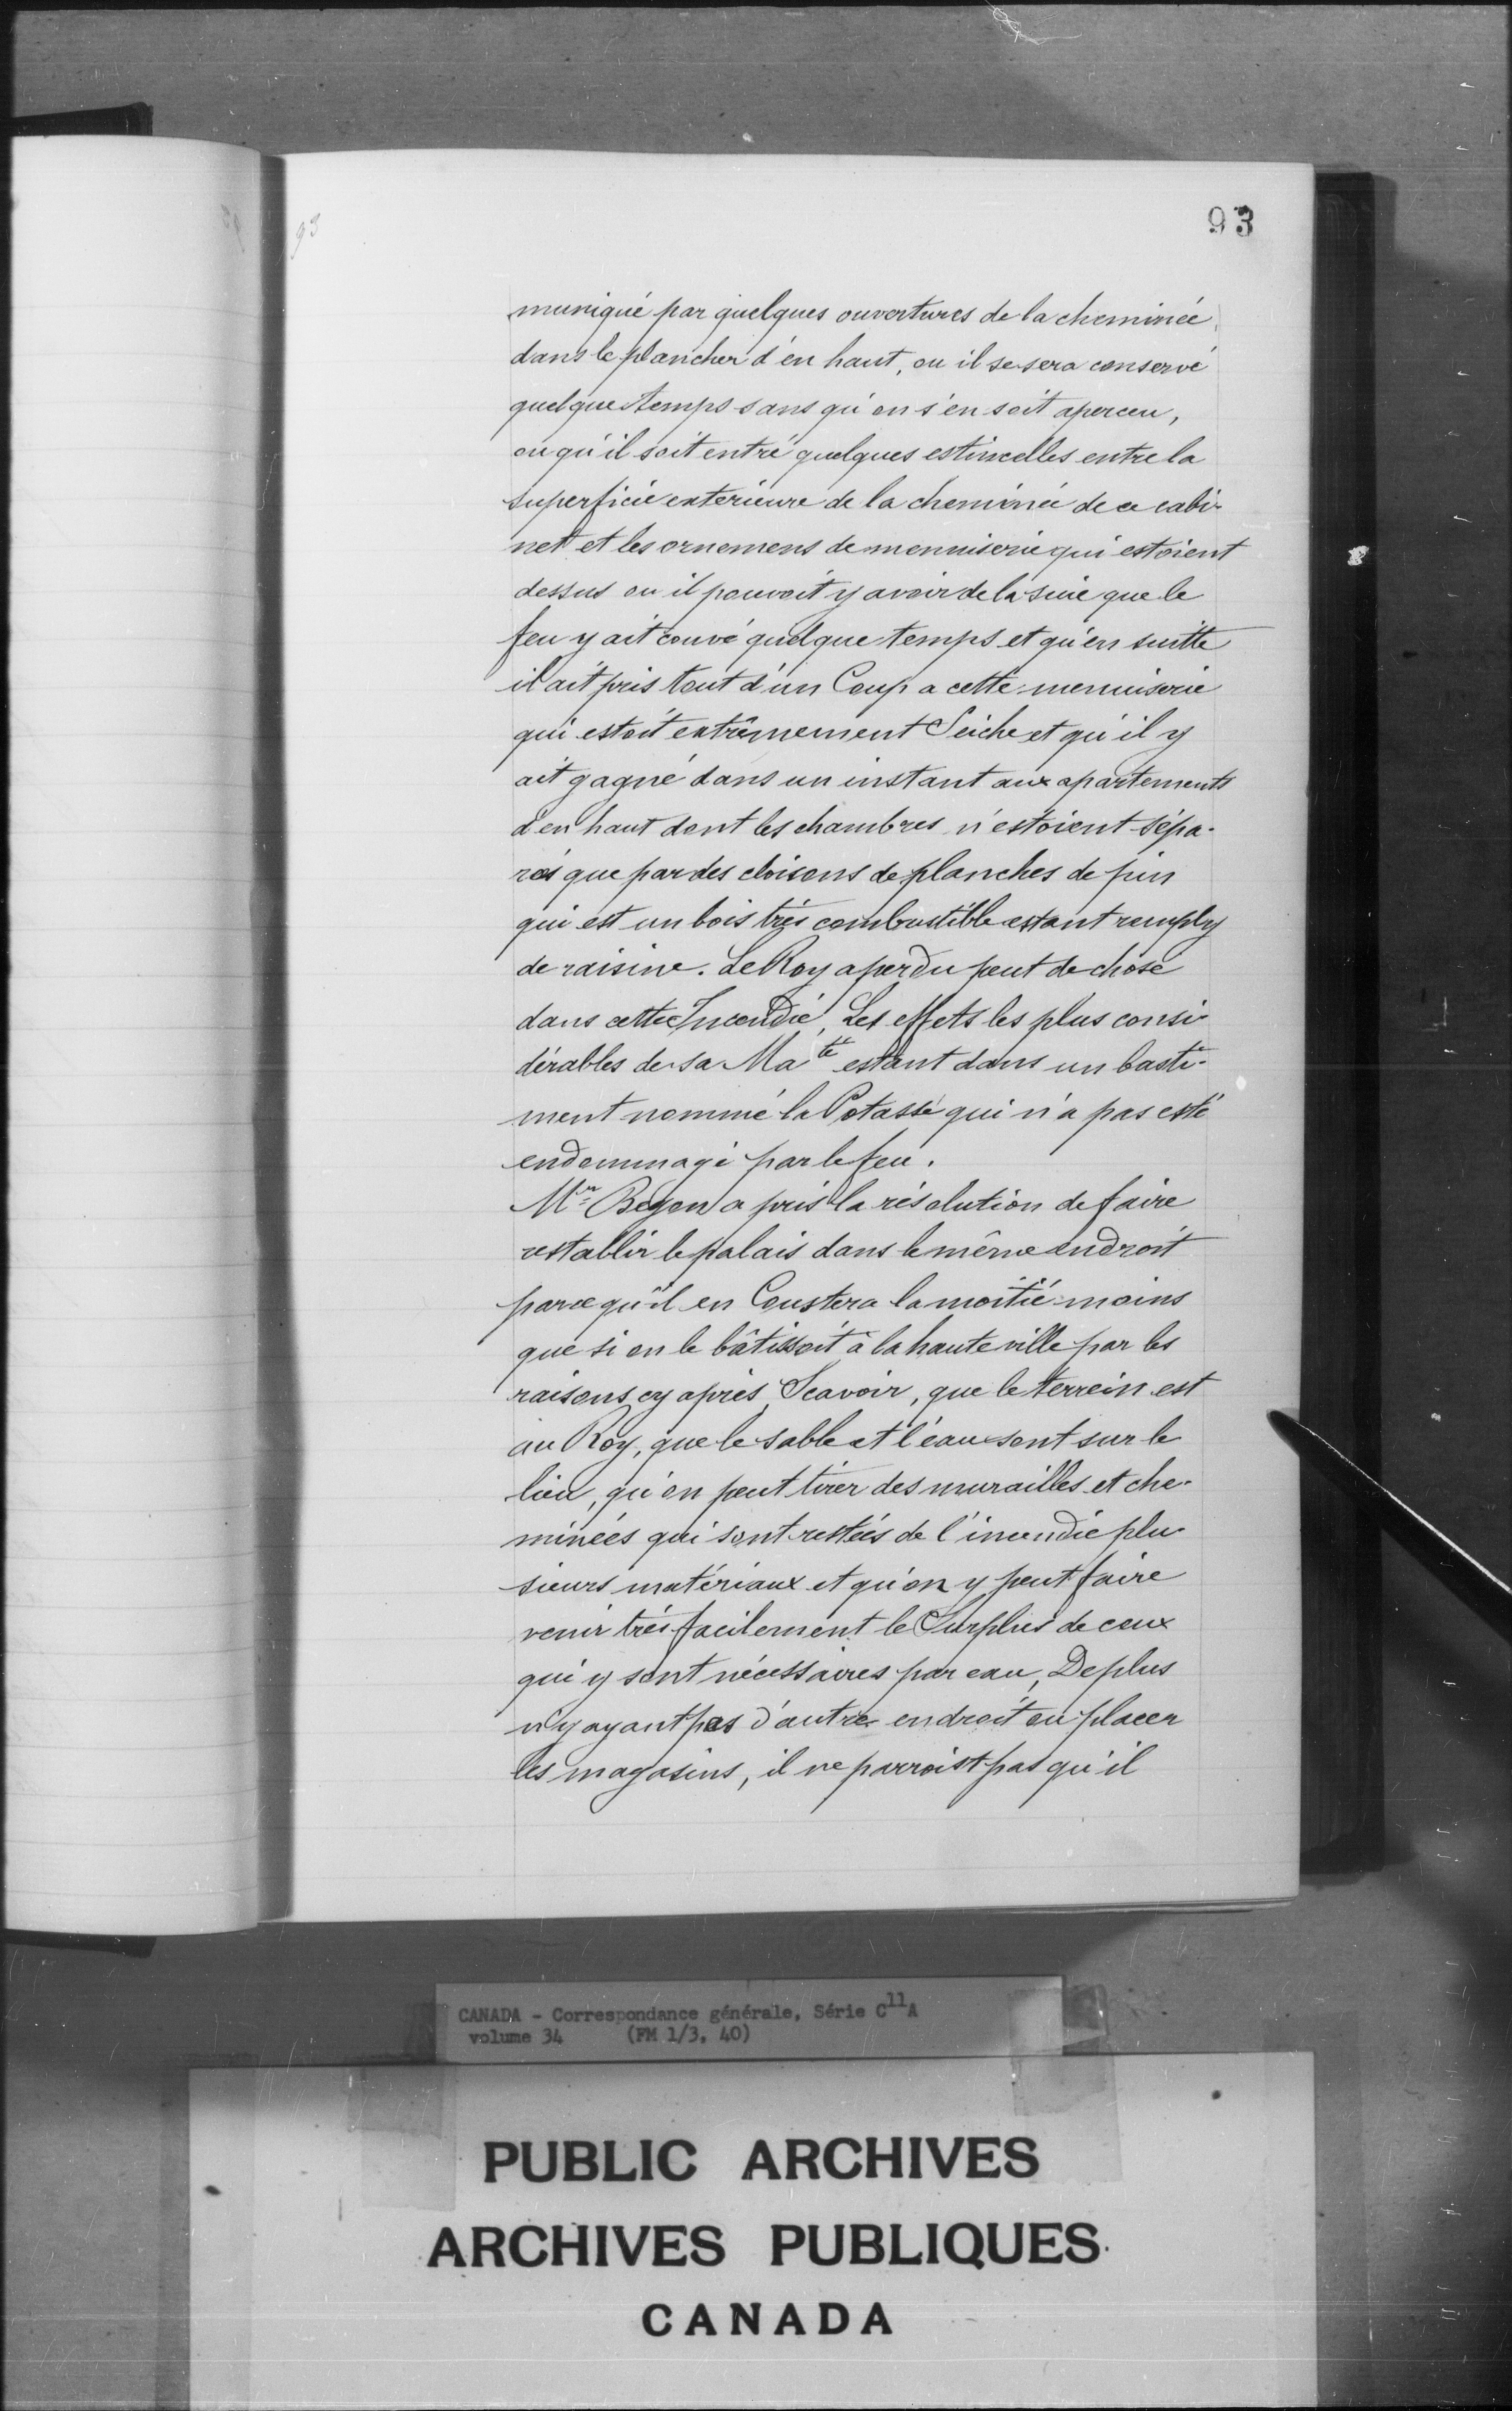 93
93
muniqué par quelques ouvertures de la cheminée
dans le plancher d'en haut, ou il se sera conservé
quelque temps sans qu'on s'en soit aperceu,
ou qu'il soit entré quelques estincelles entre la
superficie exterieure de la cheminée de ce cabi-
net et les ornemens de menuiserie qui estoient
dessus ou il pouvoit y avoir de la suie que le
feu y ait couvé quelque temps et qu'en suitte
il ait pris tout d'un Coup a cette menuiserie
qui estoit extrêmement Seiche et qu'il y
ait gagné dans un instant aux apartements
d'en haut dont les chambres n'estoient sépa-
rés que par des cloisons de planches de pin
qui est un bois très combustible estant remply
de raisine. Le Roy a perdu peut de chose
dans cette Incendie, Les effets les plus consi-
dérables de sa Ma.té estant dans un basti-
ment nommé la Potasse qui n'a pas esté
endommagé par le feu.
Mr. Begon a pris la résolution de faire
restablir le palais dans le même endroit
parce qu'il en Coustera la moitié moins
que si on le bâtissoit à la haute ville par les
raisons cy après Scavoir, que le terrein est
au Roy, que le sable et l'eau sont sur le
lieu, qu'on peut tirer des murailles et che-
minées qui sont restées de l'incendie plu-
sieurs matériaux et qu'on y peut faire
venir très facilement le Surplus de ceux
qui y sont nécessaires par eau, De plus
n'y ayant pas d'autre endroit ou placer
les magasins, il ne parroist pas qu'il
CANADA - Correspondance générale, Série C11A
volume 34 (FM 1/3, 40)
PUBLIC ARCHIVES
ARCHIVES PUBLIQUES
CANADA